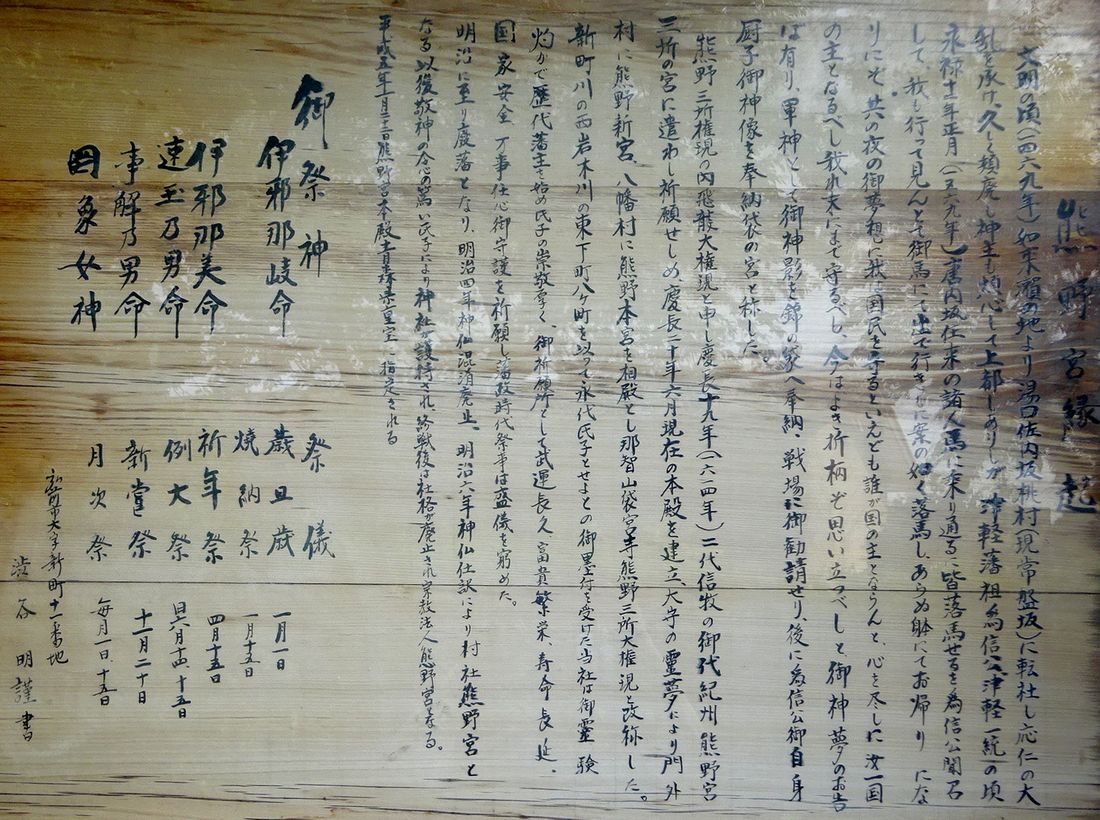 熊野宮縁起
文明の頃(一四六九年)如来瀬の地より湯口佐内坂桃村(現常盤坂)に転社し応仁の大
乱を承け、久しく頽廃も神主も
永禄十二年正月(一五六九年)唐内坂往来の諸人馬に乗り通るに皆落馬せるを為信公聞召
して、我も行って見んとて御馬にて出で行きしに案の如く落馬し、あらぬ躰にてお帰り にな
りにその夜の御夢想に我は国民を守るといえども誰が国の主とならんと、心を尽しに汝一国
の主となるべし我れ末によて守るべし、今はよき折柄ぞ思い立つべしと御神夢のお告
ば有り、軍神として御神影を錦の袋へ奉納、戦場に御勧請せり、後に為信公御自身
厨子御神像を奉納袋の宮と称した。
熊野三所権現の内飛龍大権現と申し慶長十九年(一六一四年)二代信牧の御代紀州熊野宮
三所の宮に遣わし祈願せしめ慶長二十年六月現在の本殿を建立、大守の霊夢により門外
村に熊野新宮、八幡村に熊野本宮を相殿とし那智山袋宮寺熊野三所大権現と改称した。
新町川の西岩木川の東下町八ヶ町を以って永代氏子とせよとの御墨付を受けた当社は御霊験
灼かで歴代藩主を始め氏子の崇敬篤く、御祈願所として武運長久富貴繁栄、寿命長延、
国家安全 万事仕心御守護を祈願し藩政時代祭事は盛儀を窮めた。
明治に至り廃藩となり、明治四年神仏混淆廃止、明治六年神仏仕訳により村社熊野宮と
なる以後敬神の念心の篤い氏子により神社が護持され、終戦後は社格が廃止され宗教法人熊野宮となる。
平成五年一月二十二日熊野宮本殿青森県重宝に指定される
御祭神
伊邪那岐命
伊邪那美命
速玉乃男命
事解乃男命
罔象女神
祭儀
歳旦歳 一月一日
焼納祭 一月十五日
祈年祭 四月十五日
例大祭 旧六月十四、十五日
新嘗祭 十一月二十日
月次祭 毎月一日、十五日
弘前市大字新町十一番地
渋谷 明 謹書